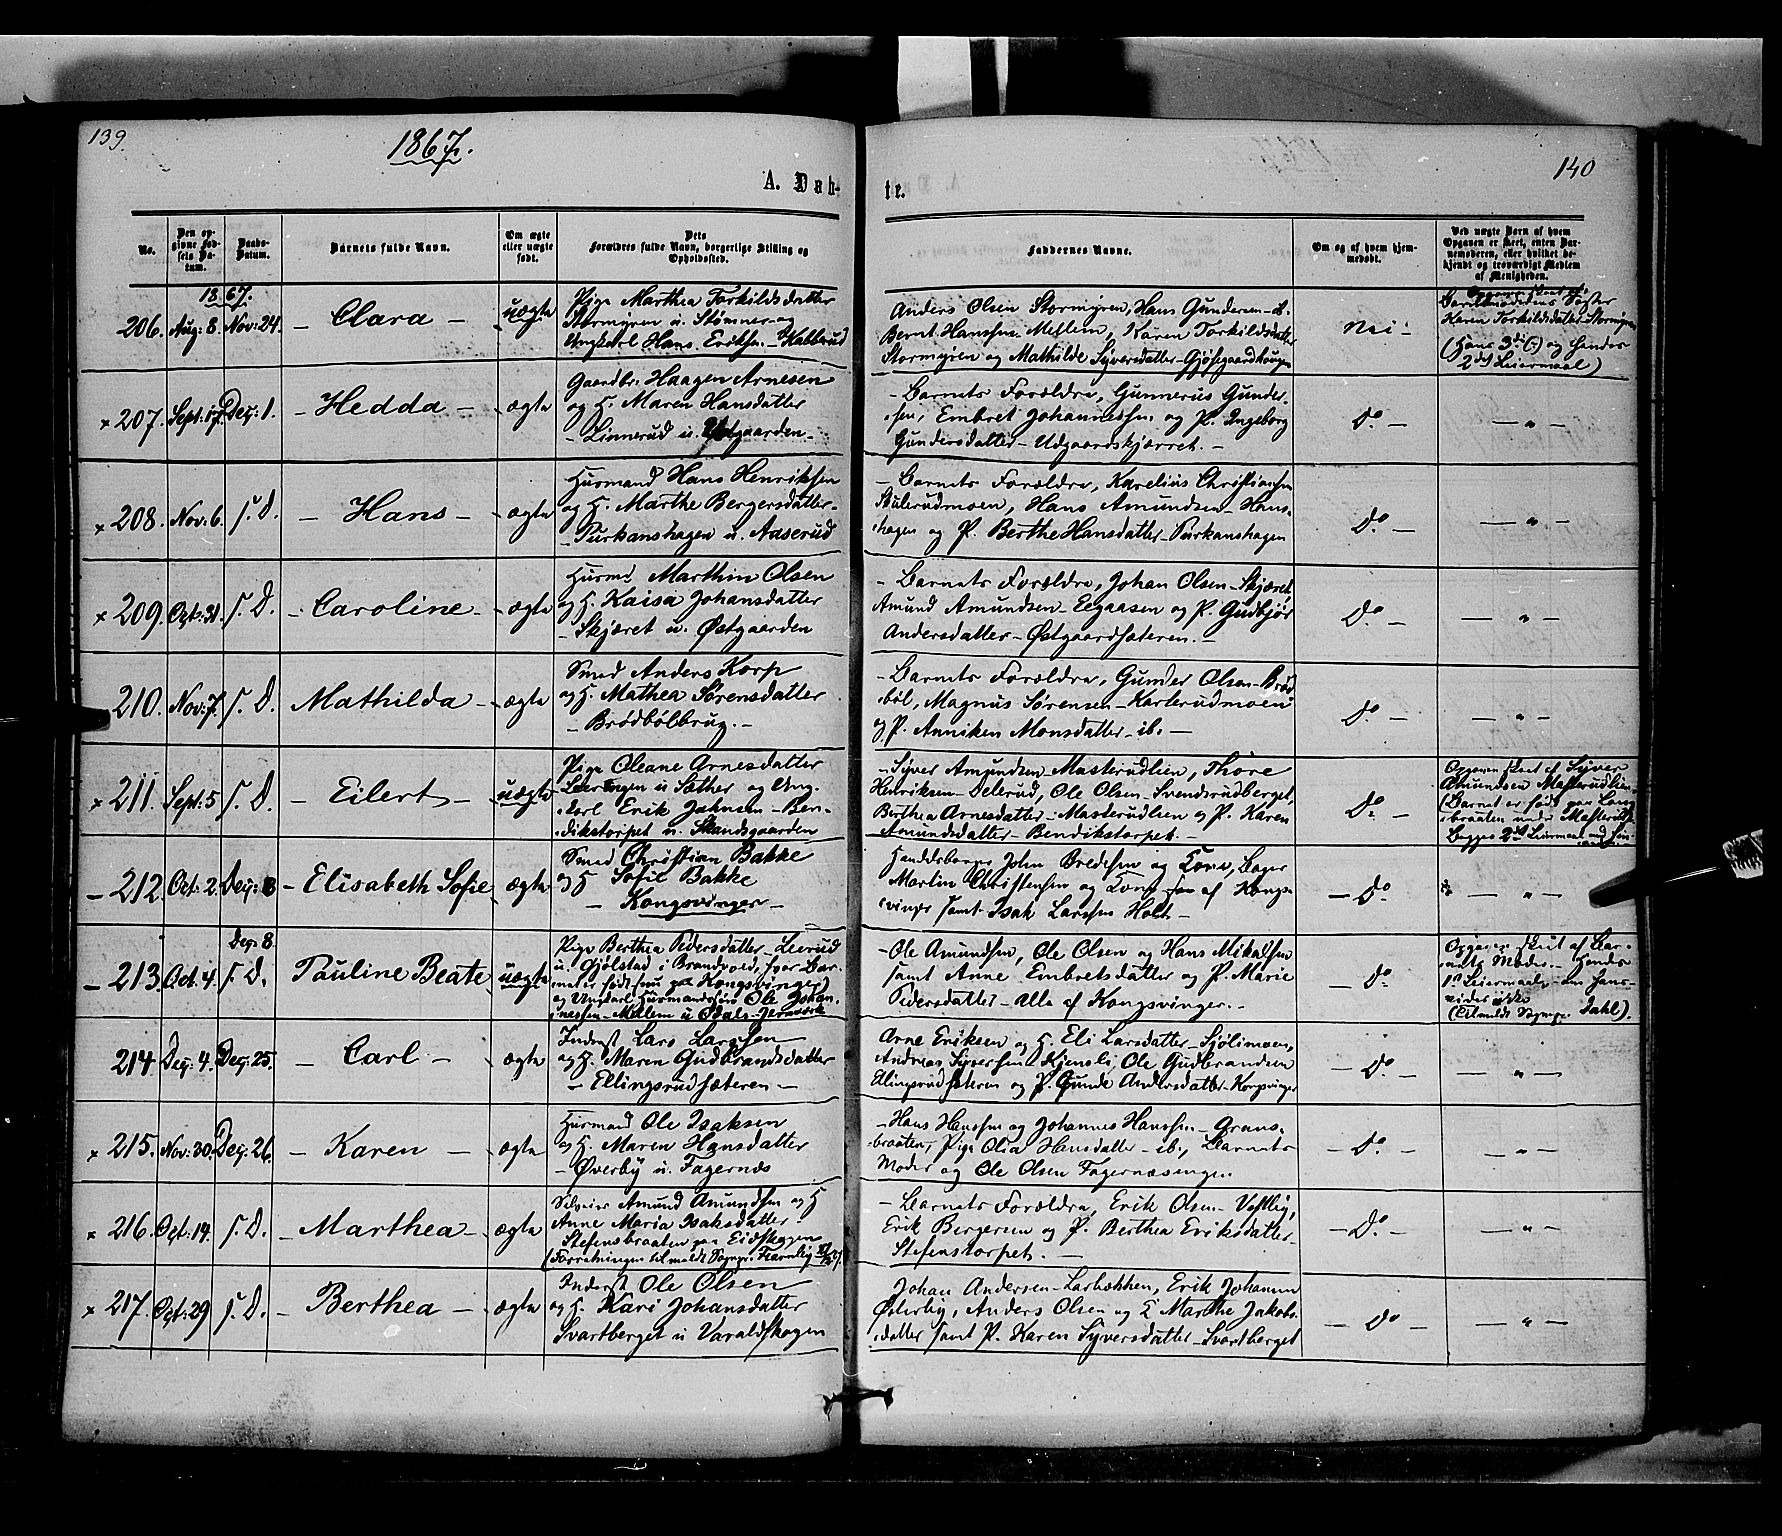 139.
1867.
140
A. Døb-
te.
No.
Den op-
givne Fød-
sels Da-
tum.
Daabs-
Datum.
Barnets fulde Navn.
Om ægte
eller uægte
født.
Dets
Forældres fulde Navn, borgerlige Stilling og
Opholdssted.
Faddernes Navne.
Om og af hvem hjem-
medøbt.
Ved uægte Børn af hvem
Opgaven er skeet, enten Bar-
nemoderen, eller hvilket be-
kjendt og troværdigt Medlem
af Menigheden.
1867.
206. Aug: 8. Nov: 24. – Clara – uægte
Pige Marthea Torkildsdatter
Stormyren u. Stømner og
Ungkarl Hans Eriksen – Habberud
Anders Olsen Stormyren, Hans Gundersen –
Bernt Hanssen Mellem, Karen Torkildsdatter
Stormyren og Mathilde Syversdatter – Gjøsegaardhaugen
Nei –
Opgaven skeet af
Barnemoderens Søster
Karen Torkildsdatter – Stormyren
(Hans 3die og Hendes
2det Leiermaal)
× 207. Sept: 17. Dec: 1. – Hedda – ægte
Gaardbr. Haagen Arnesen
og H. Maren Hansdatter
– Linnerud u. Østgaarden –
– Barnets Forældre, Gunnerus Gunder-
sen, Embret Johannessen og P. Ingeborg
Gundersdatter – Udgaardskjærret. –
Do – — „ —
× 208. Nov: 6. s. D. – Hans – ægte
Husmand Hans Henriksen
og H. Marthe Bergersdatter –
– Purkanshagen u. Aaserud
– Barnets Forældre, Karelius Christiansen
Skulerudmoen, Hans Amundsen – Hans-
hagen og P. Berthe Hansdatter – Purkanshagen
Do – — „ —
× 209. Oct: 31. s. D. – Caroline – ægte
Husmd Marthin Olsen
og H. Kaisa Johansdatter
– Skjæret u. Østgaarden
– Barnets Forældre, Johan Olsen – Skjæret
Amund Amundsen – Eegaasen og P. Gudbjør
Andersdatter – Østgaardsæteren. –
Do – — „ —
210. Nov: 7. s. D. Mathilda – ægte
Smed Anders Korp
og H. Mathea Sørensdatter
– Brødbølbrug. –
– Barnets Forældre, Gunder Olsen – Brød-
bøl, Magnus Sørensen – Karterudmoen
og P. Anniken Monsdatter – ib. –
Do – — „ —
× 211. Sept: 5 s. D. – Eilert – uægte
Pige Oleane Arnesdatter
u. Sæther og Ung-
karl Erik Jahnsen – Ben-
dikstorpet u. Skandsgaarden
– Syver Amundsen – Masterudlien, Thore
Henriksen – Delerud, Ole Olsen – Svendsrudberget,
Berthea Arnesdatter – Masterudlien og P. Karen
Amundsdatter – Bendikstorpet. –
Do –
Opgaven skeet af Syver
Amundsen Masterudlien
(Barnet er født paa Lang-
braaten under Masterud.
Begges 2det Leiermaal
– 212. Oct: 2. Dec: 8 – Elisabeth Sofie – ægte
Smed Christian Bakke
og H Sofie Bakke
– Kongsvinger –
Handelsborger John Bredesen og Kone, Bager
Martin Christensen og Kone af Kongs-
vinger samt Isak Larssen Holt –
– Do – — „ —
– 213. Oct: 4. Dec: 8. s. D. Pauline Beate uægte
Pige Berthea Pedersdatter – Leerud
u. Gjølstad i Brandvold, hvor Bar-
net er født, nu paa Kongsvinger,
og Ungkarl Husmandssøn Ole Johan-
nessen – Mellem u Odals-Jernværk
– Ole Amundsen, Ole Olsen og Hans Mikalsen
samt Anne Embretsdatter og P. Marie
Pedersdatter – Alle af Kongsvinger. –
– Do –
Opgaven skeet af Bar-
nets Moder. – Hendes
1ste Leiermaal, – om hans
vides ikke
(Tilmeldt Sognepr. Dahl).
214. Dec: 4. Dec: 25. – Carl – ægte
Inderst Lars Larssen
og H. Maren Gudbrandsdatter
– Ellingsrudsæteren –
Arne Eriksen og H. Eli Larsdatter – Sjølimoen,
Andreas Syversen Kjensli, Ole Gudbrandsen
Ellingsrudsæteren og P. Gunde Andersdatter – Kongsvinger
– Do – — „ —
× 215. Nov: 30. Dec: 26. – Karen – ægte
Husmand Ole Isaksen
og H. Maren Hansdatter
– Øverby u. Fagernæs
– Hans Hanssen og Johannes Hanssen – Grans-
braaten, Pige Olia Hansdatter – ib., Barnets
Moder og Ole Olsen Fagernæsengen
– Do – — „ —
× 216. Oct: 14. s. D. – Marthea – ægte
Selveier Amund Amundsen og H
Anne Maria Isaksdatter
Stefensbraaten paa Eidskogen
(Forretningen tilmeldt Sognepr. Fearnley
– Barnets Forældre, Erik Olsen – Vestby,
Erik Bergersen og P. Berthea Eriksdatter –
Stefenstorpet. –
– Do – — „ —
× 217. Oct: 29 s. D. – Berthea – ægte
Inderst Ole Olsen
og H. Kari Johansdatter
Svartberget u Varaldskogen
Johan Andersen – Larbækken, Erik Johannessen
Østerby, Anders Olsen og H Marthe Jakobs-
datter samt P. Karen Syversdatter – Svartberget
– Do – — „ —